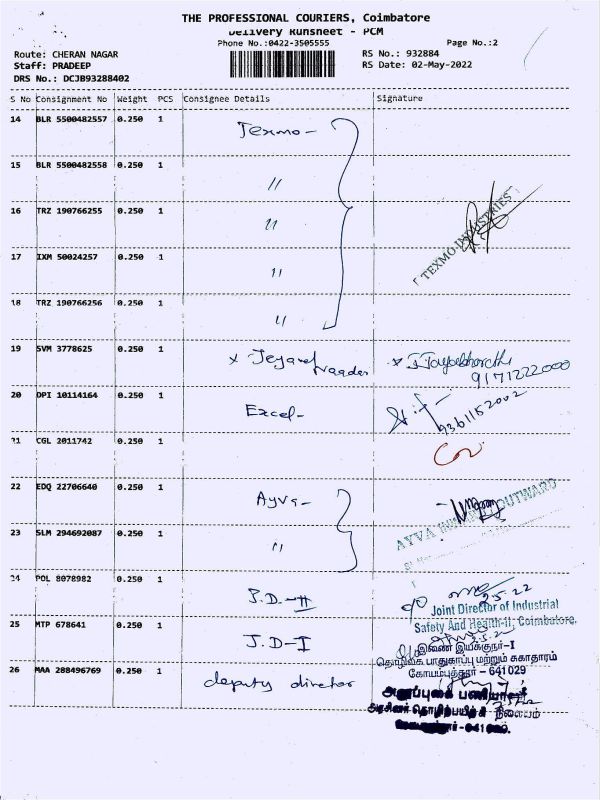 THE PROFESSIONAL COURIERS, Coimbatore
Delivery Runsheet - PCM
Phone No.:0422-3505555
Page No.:2
Route: CHERAN NAGAR
Staff: PRADEEP
DRS No.: DCJB93288402
RS No.: 932884
RS Date: 02-May-2022
S No Consignment No Weight PCS Consignee Details Signature
14 BLR 5500482557 0.250 1 Texmo -
15 BLR 5500482558 0.250 1 "
16 TRZ 190766255 0.250 1 "
TEXMO INDUSTRIES
17 IXM 50024257 0.250 1 "
18 TRZ 190766256 0.250 1 "
19 SVM 3778625 0.250 1 x
9171222000
20 DPI 10114164 0.250 1 Excel -
9361152002
21 CGL 2011742 0.250 1
22 EDQ 22706640 0.250 1 Ayva -
AYVA OUTWARD
23 SLM 294692087 0.250 1 "
24 POL 8078982 0.250 1 J.D - II
2.5.22
Joint Director of Industrial
Safety And Health-II, Coimbatore.
25 MTP 678641 0.250 1 J.D - I
இணை இயக்குநர்-I
தொழிலக பாதுகாப்பு மற்றும் சுகாதாரம்
கோயம்புத்தூர் - 641029
26 MAA 288496769 0.250 1 deputy director
அலுவலக பணியாளர்
அரசினர் தொழிற்பயிற்சி நிலையம்